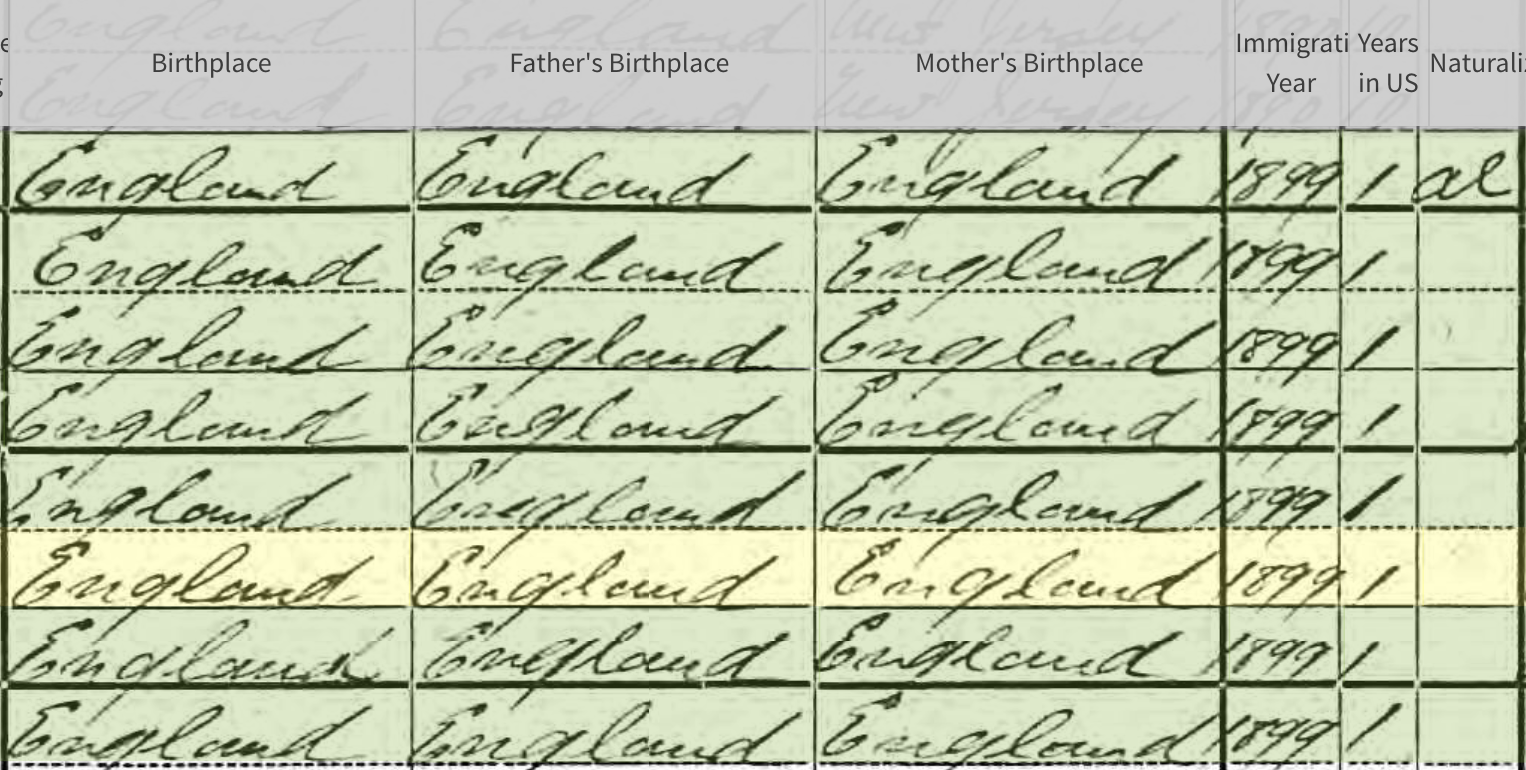 Birthplace Father's Birthplace Mother's Birthplace Immigrati Year Years in US Naturaliz
England England England 1899 1 al
England England England 1899 1
England England England 1899 1
England England England 1899 1
England England England 1899 1
England England England 1899 1
England England England 1899 1
England England England 1899 1